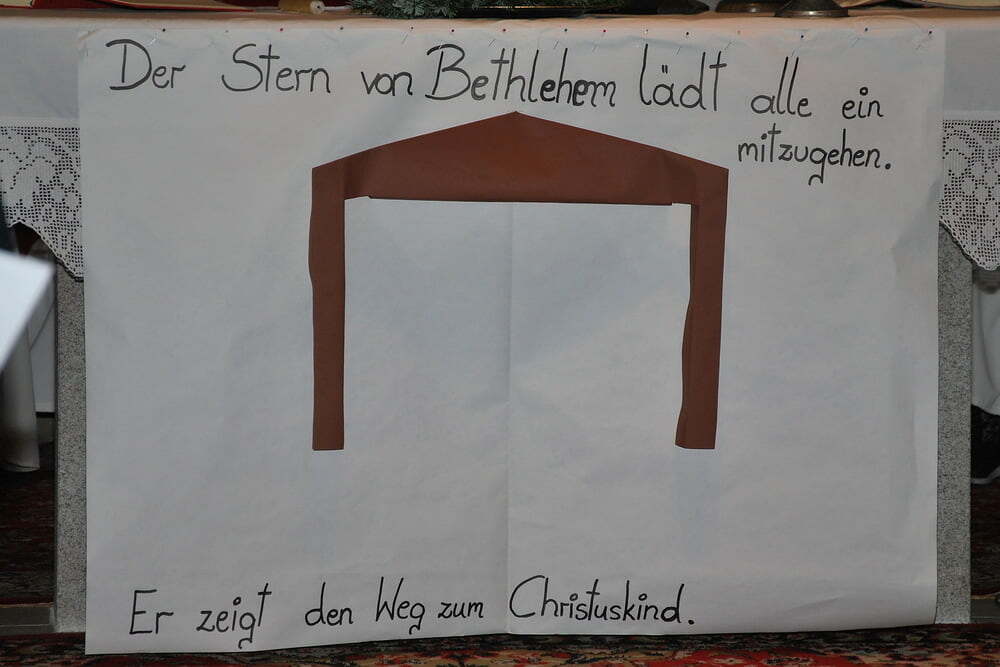 Der Stern von Bethlehem lädt alle ein
mitzugehen.
Er zeigt den Weg zum Christuskind.